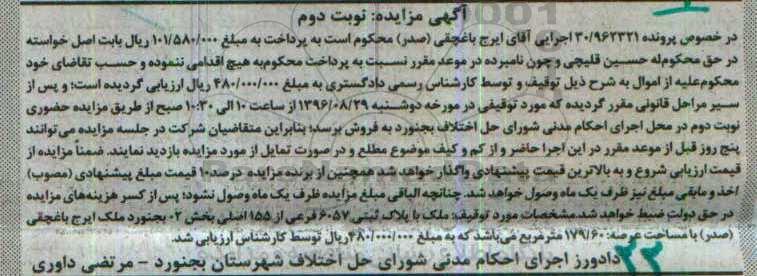 آگهی مزایده: نوبت دوم
در خصوص پرونده ۳۰/۹۶۲۳۲۱ اجرایی آقای ایرج باغچقی (صدر) محکوم است به پرداخت به مبلغ ۱۰۱/۵۸۰/۰۰۰ ریال بابت اصل خواسته
در حق محکوم‌له حسین قلیچی و چون نامبرده در موعد مقرر نسبت به پرداخت محکوم‌به هیچ اقدامی ننموده و حسب تقاضای خود
محکوم‌علیه از اموال به شرح ذیل توقیف و توسط کارشناس رسمی دادگستری به مبلغ ۴۸۰/۰۰۰/۰۰۰ ریال ارزیابی گردیده است؛ و پس از
سیر مراحل قانونی مقرر گردیده که مورد توقیفی در مورخه دوشنبه ۱۳۹۶/۰۸/۲۹ از ساعت ۱۰ الی ۱۰:۳۰ صبح از طریق مزایده حضوری
نوبت دوم در محل اجرای احکام مدنی شورای حل اختلاف بجنورد به فروش برسد؛ بنابراین متقاضیان شرکت در جلسه مزایده می‌توانند
پنج روز قبل از موعد مقرر در این اجرا حاضر و از کم و کیف موضوع مطلع و در صورت تمایل از مورد مزایده بازدید نمایند. ضمناً مزایده از
قیمت ارزیابی شروع و به بالاترین قیمت پیشنهادی واگذار خواهد شد همچنین از برنده مزایده ۱۰درصد قیمت مبلغ پیشنهادی (مصوب)
اخذ و مابقی مبلغ نیز ظرف یک ماه وصول خواهد شد. چنانچه الباقی مبلغ مزایده ظرف یک ماه وصول نشود؛ پس از کسر هزینه‌های مزایده
در حق دولت ضبط خواهد شد.مشخصات مورد توقیف: ملک با پلاک ثبتی ۶۰۵۷ فرعی از ۱۵۵ اصلی بخش ۰۲ بجنورد ملک ایرج باغچقی
(صدر) با مساحت عرصه: ۱۷۹/۶۰ مترمربع می‌باشد که به مبلغ ۴۸۰/۰۰۰/۰۰۰ریال توسط کارشناس ارزیابی شد.
دادورز اجرای احکام مدنی شورای حل اختلاف شهرستان بجنورد - مرتضی داوری